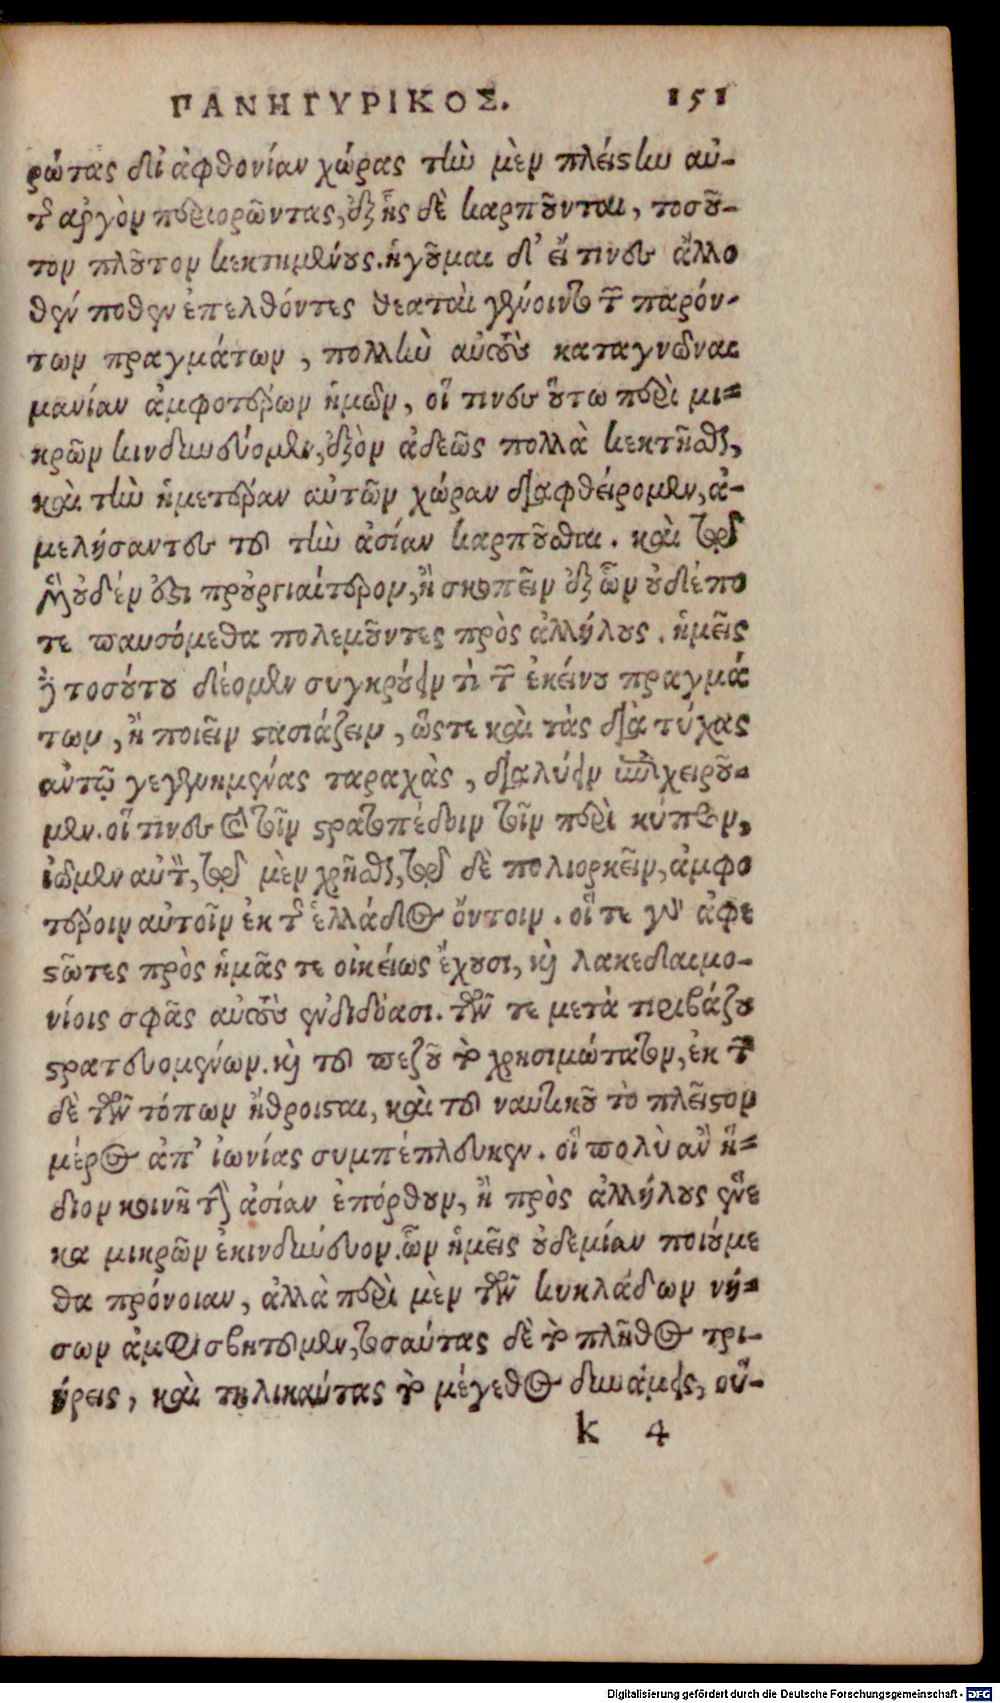 ΠΑΝΗΓΥΡΙΚΟΣ. 151
ρώτας δι' ἀφθονίαν χώρας τὴν μὲν πλείστην αὐ-
τῆς ἀργὸν περιορῶντας, ἐξ ἧς δὲ καρποῦνται, τοσοῦ-
τον πλοῦτον κεκτημένους. ἡγοῦμαι δ' εἴ τινες ἄλλο
θεν ποθεν ἐπελθόντες θεαταὶ γένοιντο τῶν παρόν-
των πραγμάτων, πολλὴν αὐτοὺς καταγνῶναι
μανίαν ἀμφοτέρων ἡμῶν, οἵ τινες οὕτω περὶ μι-
κρῶν κινδυνεύομεν, ἐξὸν ἀδεῶς πολλὰ κεκτῆσθαι,
καὶ τὴν ἡμετέραν αὐτῶν χώραν διαφθείρομεν, ἀ-
μελήσαντες τοῦ τὴν ἀσίαν καρποῦσθαι. καὶ τῷ
μὲν οὐδέν ἐστι προὐργιαίτερον, ἢ σκοπεῖν ἐξ ὧν οὐδέπο
τε παυσόμεθα πολεμοῦντες πρὸς ἀλλήλους. ἡμεῖς
δὲ τοσούτου δέομεν συγκρούειν τὶ τῶν ἐκείνου πραγμά
των, ἢ ποιεῖν στασιάζειν, ὥστε καὶ τὰς διὰ τύχας
αὐτῷ γεγενημένας ταραχὰς, διαλύειν ἐπιχειροῦ-
μεν. οἵ τινες καὶ τοῖν στρατοπέδοιν τοῖν περὶ κύπρον,
ἐῶμεν αὐτὸν, τῷ μὲν χρῆσθαι, τῷ δὲ πολιορκεῖν, ἀμφο
τέροιν αὐτοῖν ἐκ τῆς ἑλλάδος ὄντοιν. οἵ τε γὰρ ἀφε
στῶτες πρὸς ἡμᾶς τε οἰκείως ἔχουσι, καὶ λακεδαιμο-
νίοις σφᾶς αὐτοὺς ἐνδιδόασι. τῶν τε μετὰ τιριβάζου
στρατευομένων. καὶ τοῦ πεζοῦ τὸ χρησιμώτατον, ἐκ τῶν
δὲ τῶν τόπων ἤθροισται, καὶ τοῦ ναυτικοῦ τὸ πλεῖστον
μέρος ἀπ' ἰωνίας συμπέπλευκεν. οἳ πολὺ ἂν ἥ-
διον κοινῇ τὴν ἀσίαν ἐπόρθουν, ἢ πρὸς ἀλλήλους ἕνε
κα μικρῶν ἐκινδύνευον. ὧν ἡμεῖς οὐδεμίαν ποιούμε
θα πρόνοιαν, ἀλλὰ περὶ μὲν τῶν κυκλάδων νή-
σων ἀμφισβητοῦμεν, τοσαύτας δὲ τὸ πλῆθος τρι-
ήρεις, καὶ τηλικαύτας τὸ μέγεθος δυνάμεις, οὕ-
k 4
Digitalisierung gefördert durch die Deutsche Forschungsgemeinschaft - DFG